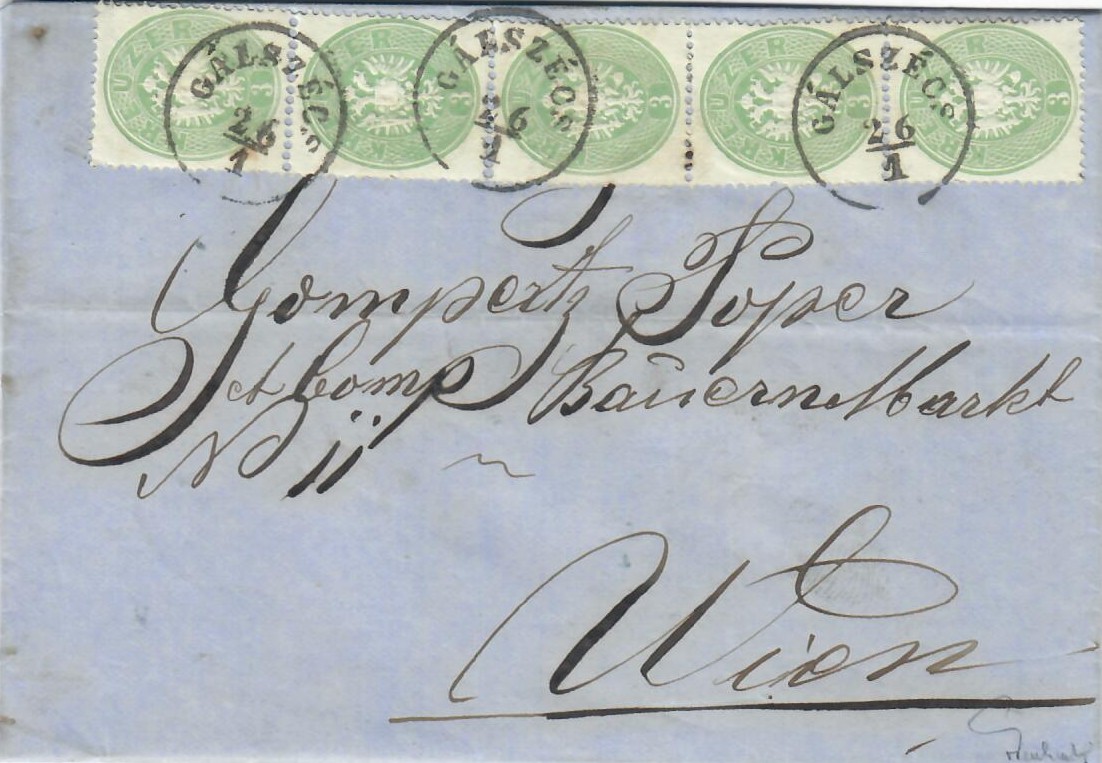 KREUZER 3 KREUZER 3 KREUZER 3 KREUZER 3 KREUZER 3
GÁLSZÉCS 26/1 GÁLSZÉCS 26/1 GÁLSZÉCS 26/1
Gompertz Soper
et Comp Bauernmarkt
N 11
Wien